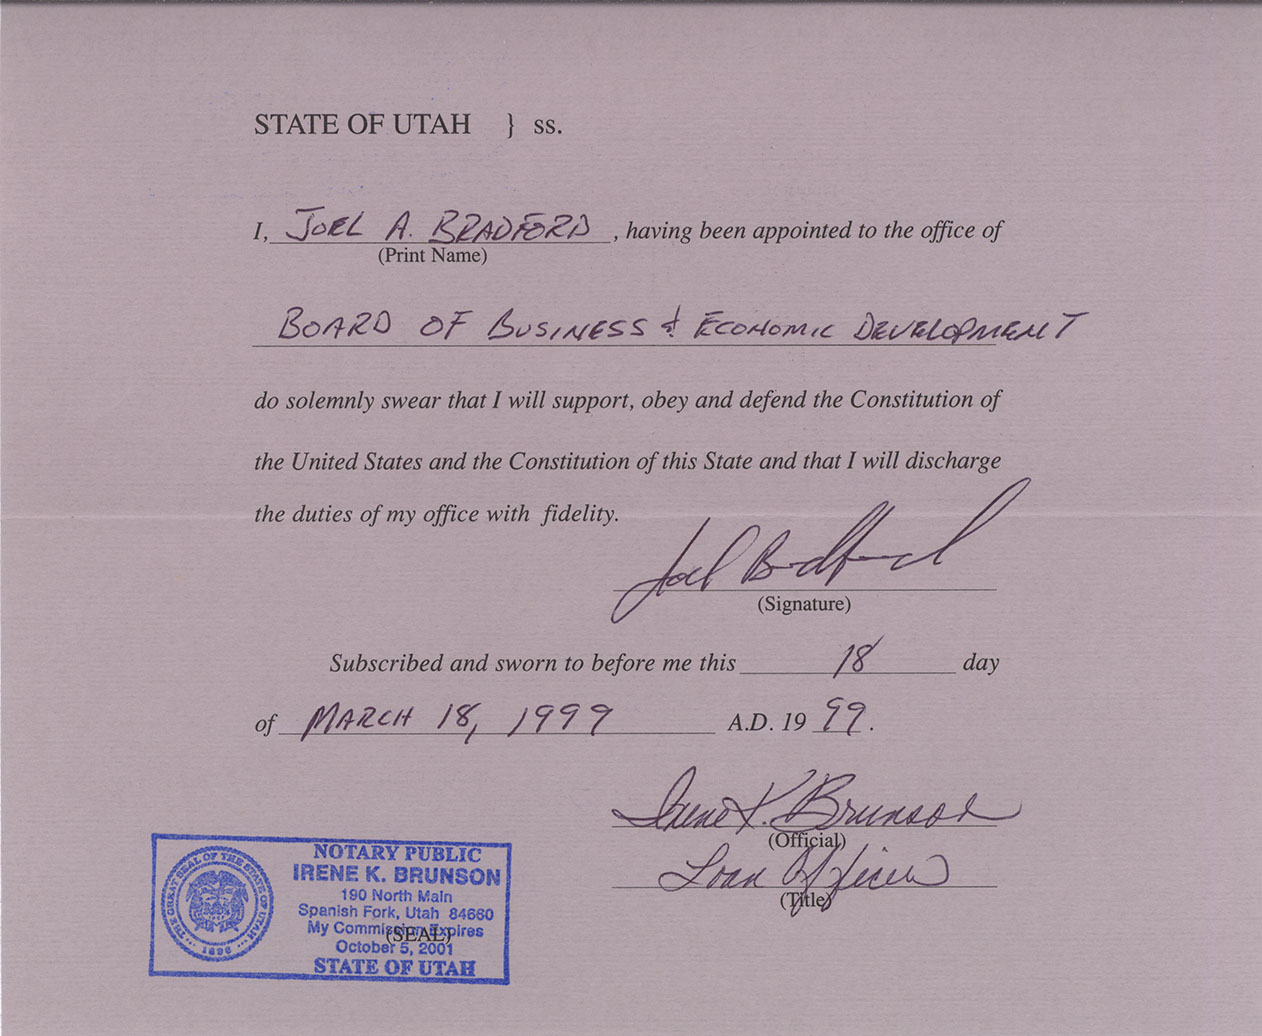 STATE OF UTAH } ss.
I, JOEL A. BRADFORD, having been appointed to the office of
(Print Name)
BOARD OF BUSINESS & ECONOMIC DEVELOPMENT
do solemnly swear that I will support, obey and defend the Constitution of
the United States and the Constitution of this State and that I will discharge
the duties of my office with fidelity.
Joel Bradford
(Signature)
Subscribed and sworn to before me this 18 day
of MARCH 18, 1999 A.D. 19 99.
Irene K. Brunson
(Official)
Loan Officer
(Title)
THE GREAT SEAL OF THE STATE OF UTAH
1896
NOTARY PUBLIC
IRENE K. BRUNSON
190 North Main
Spanish Fork, Utah 84660
My Commission Expires
(SEAL)
October 5, 2001
STATE OF UTAH